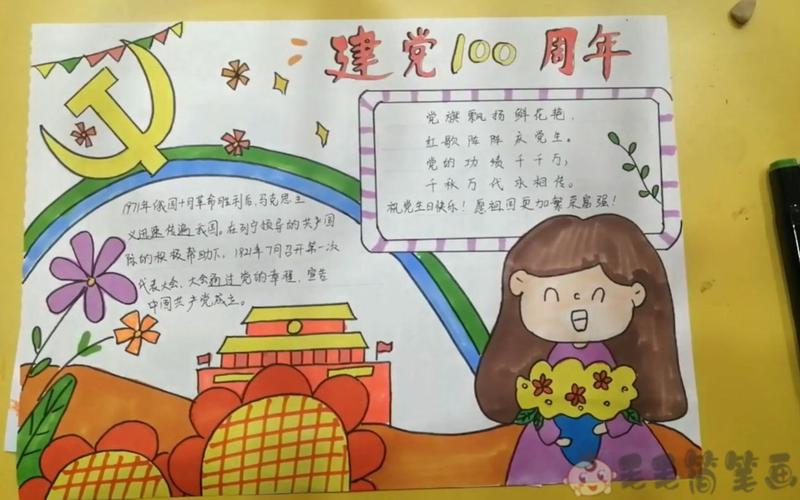 建党100周年
党旗飘扬鲜花艳,
红歌阵阵庆党生。
党的功绩千千万,
千秋万代永相传。
祝党生日快乐!愿祖国更加繁荣富强!
1971年俄国十月革命胜利后、马克思主
义迅速传遍我国。在列宁领导的共产国
际的积极帮助下、1821年7月召开第一次
代表大会、大会通过党的章程,宣告
中国共产党成立。
毛毛简笔画